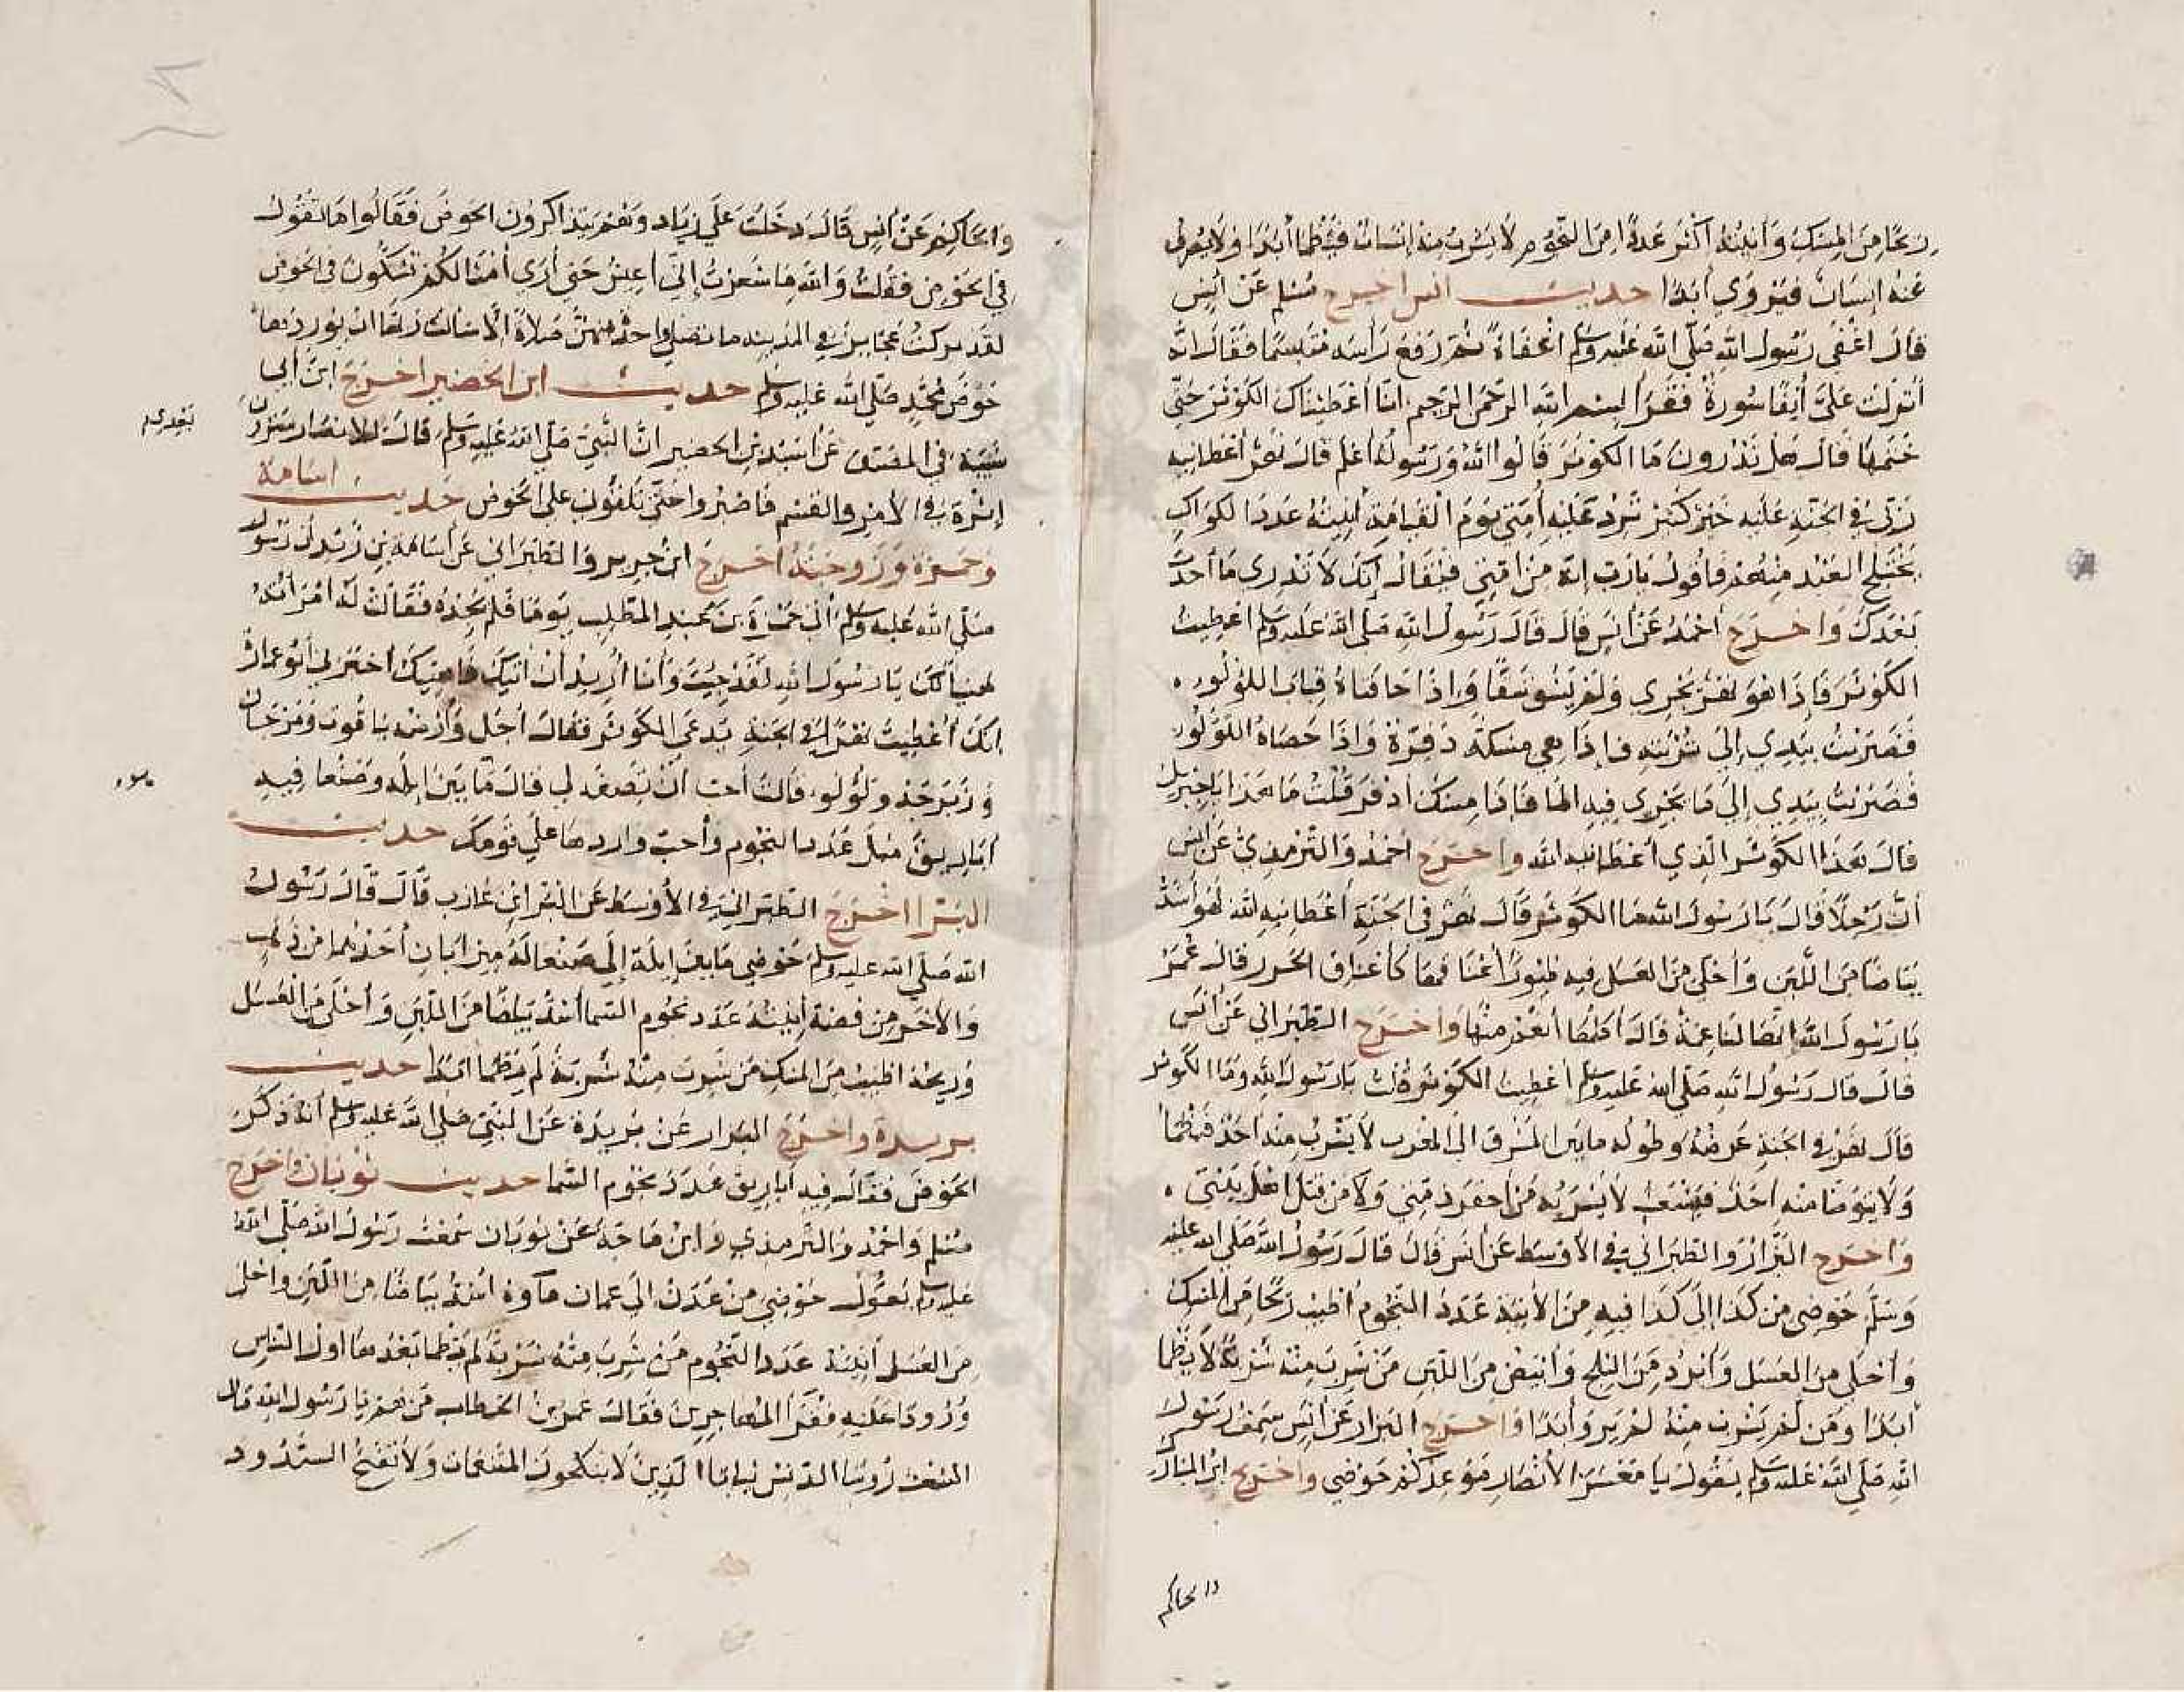 ريحا من المسك وأبنيته أكثر عددا من النجوم لا يشرب منه إنسان فيظمأ أبدا ولا يصرف
عنه إنسان فيروى أبدا حديث أنس أخرج مسلم عن أنس
قال أغفى رسول الله صلى الله عليه وسلم إغفاة ثم رفع رأسه متبسما فقال انه
أنزلت علي آنفا سورة فقرأ بسم الله الرحمن الرحيم إنا أعطيناك الكوثر حتى
ختمها قال هل تدرون ما الكوثر قالوا الله ورسوله أعلم قال نهر أعطانيه
ربي في الجنة عليه خير كثير ترد عليه أمتي يوم القيامة آنيته عدد الكواكب
يختلج العبد منهم فأقول يا رب إنه من أمتي فيقال إنك لا تدري ما أحدث
بعدك وأخرج أحمد عن أنس قال قال رسول الله صلى الله عليه وسلم أعطيت
الكوثر فإذا هو نهر يجري ولم يشق شقا وإذا حافتاه قباب اللؤلؤ
فضربت بيدي إلى تربته فإذا هي مسكة ذفرة وإذا حصاه اللؤلؤ
فضربت بيدي إلى ما يجري فيه الماء فإذا مسك أذفر قلت ما هذا يا جبريل
قال هذا الكوثر الذي أعطانيه الله وأخرج أحمد والترمذي عن أنس
أن رجلا قال يا رسول الله ما الكوثر قال نهر في الجنة أعطانيه الله لهو أشد
بياضا من اللبن وأحلى من العسل فيه طيور أعناقها كأعناق الجزر قال عمر
يا رسول الله إنها لناعمة قال أكلها أنعم منها وأخرج الطبراني عن أنس
قال قال رسول الله صلى الله عليه وسلم أعطيت الكوثر قلت يا رسول الله وما الكوثر
قال نهر في الجنة عرضه وطوله ما بين المشرق إلى المغرب لا يشرب منه أحد فيظمأ
ولا يتوضأ منه أحد فيشعث لا يشربه من أخفر ذمتي ولا من قتل أهل بيتي
وأخرج البزار والطبراني في الأوسط عن أنس قال قال رسول الله صلى الله عليه
وسلم حوضي من كذا إلى كذا فيه من الآنية عدد النجوم أطيب ريحا من المسك
وأحلى من العسل وأبرد من الثلج وأبيض من اللبن من شرب منه شربة لا يظمأ
أبدا ومن لم يشرب منه لم يرو أبدا وأخرج البزار عن أنس سمعت رسول
الله صلى الله عليه وسلم يقول يا معشر الأنصار موعدكم حوضي وأخرج ابن المبارك
والحاكم
والحاكم عن أنس قال دخلت على زياد وهم يتذاكرون الحوض فقالوا ما تقول
في الحوض فقلت والله ما شعرت إني أعيش حتى أرى أمثالكم تشكون في الحوض
لقد تركت عجائز في المدينة ما تصلي واحدة منهن صلاة إلا سألت ربها أن يوردها
حوض محمد صلى الله عليه وسلم حديث ابن الحضير أخرج ابن أبي
شيبة في المصنف عن أسيد بن الحضير أن النبي صلى الله عليه وسلم قال للأنصار سترون
بعدي
إثرة في الأمر والقسم فاصبروا حتى تلقوني على الحوض حديث أسامة
وحمزة وزوجته أخرج ابن جرير والطبراني عن أسامة بن زيد أن رسول
صلى الله عليه وسلم أتى حمزة بن عبد المطلب يوما فلم يجده فقالت له امرأته
هنيئا لك يا رسول الله لقد جئت وأنا أريد أن آتيك فأهنيك أخبرني أبو عمارة
أنك أعطيت نهرا في الجنة يدعى الكوثر فقال أجل وأرضه ياقوت ومرجان
وزبرجد ولؤلؤ قالت أحب أن تصفه لي قال ما بين أيلة وصنعا فيه
أباريق مثل عدد النجوم وأحب واردها علي قومك حديث
البرا أخرج الطبراني في الأوسط عن البراء بن عازب قال قال رسول
الله صلى الله عليه وسلم حوضي ما بين أيلة إلى صنعا له ميزابان أحدهما من ذهب
والآخر من فضة آنيته عدد نجوم السما أشد بياضا من اللبن وأحلى من العسل
وريحه أطيب من المسك من شرب منه شربة لم يظمأ أبدا حديث
بريدة وأخرج البزار عن بريدة عن النبي صلى الله عليه وسلم أنه ذكر
الحوض فقال فيه أباريق عدد نجوم السما حديث ثوبان وأخرج
مسلم وأحمد والترمذي وابن ماجه عن ثوبان سمعت رسول الله صلى الله
عليه وسلم يقول حوضي من عدن إلى عمان ماؤه أشد بياضا من اللبن وأحلى
من العسل آنيته عدد النجوم من شرب منه شربة لم يظمأ بعدها أول الناس
ورودا عليه فقراء المهاجرين فقال عمر بن الخطاب من هم يا رسول الله قال
الشعث رؤسا الدنس ثيابا الذين لا ينكحون المتنعمات ولا تفتح السدود